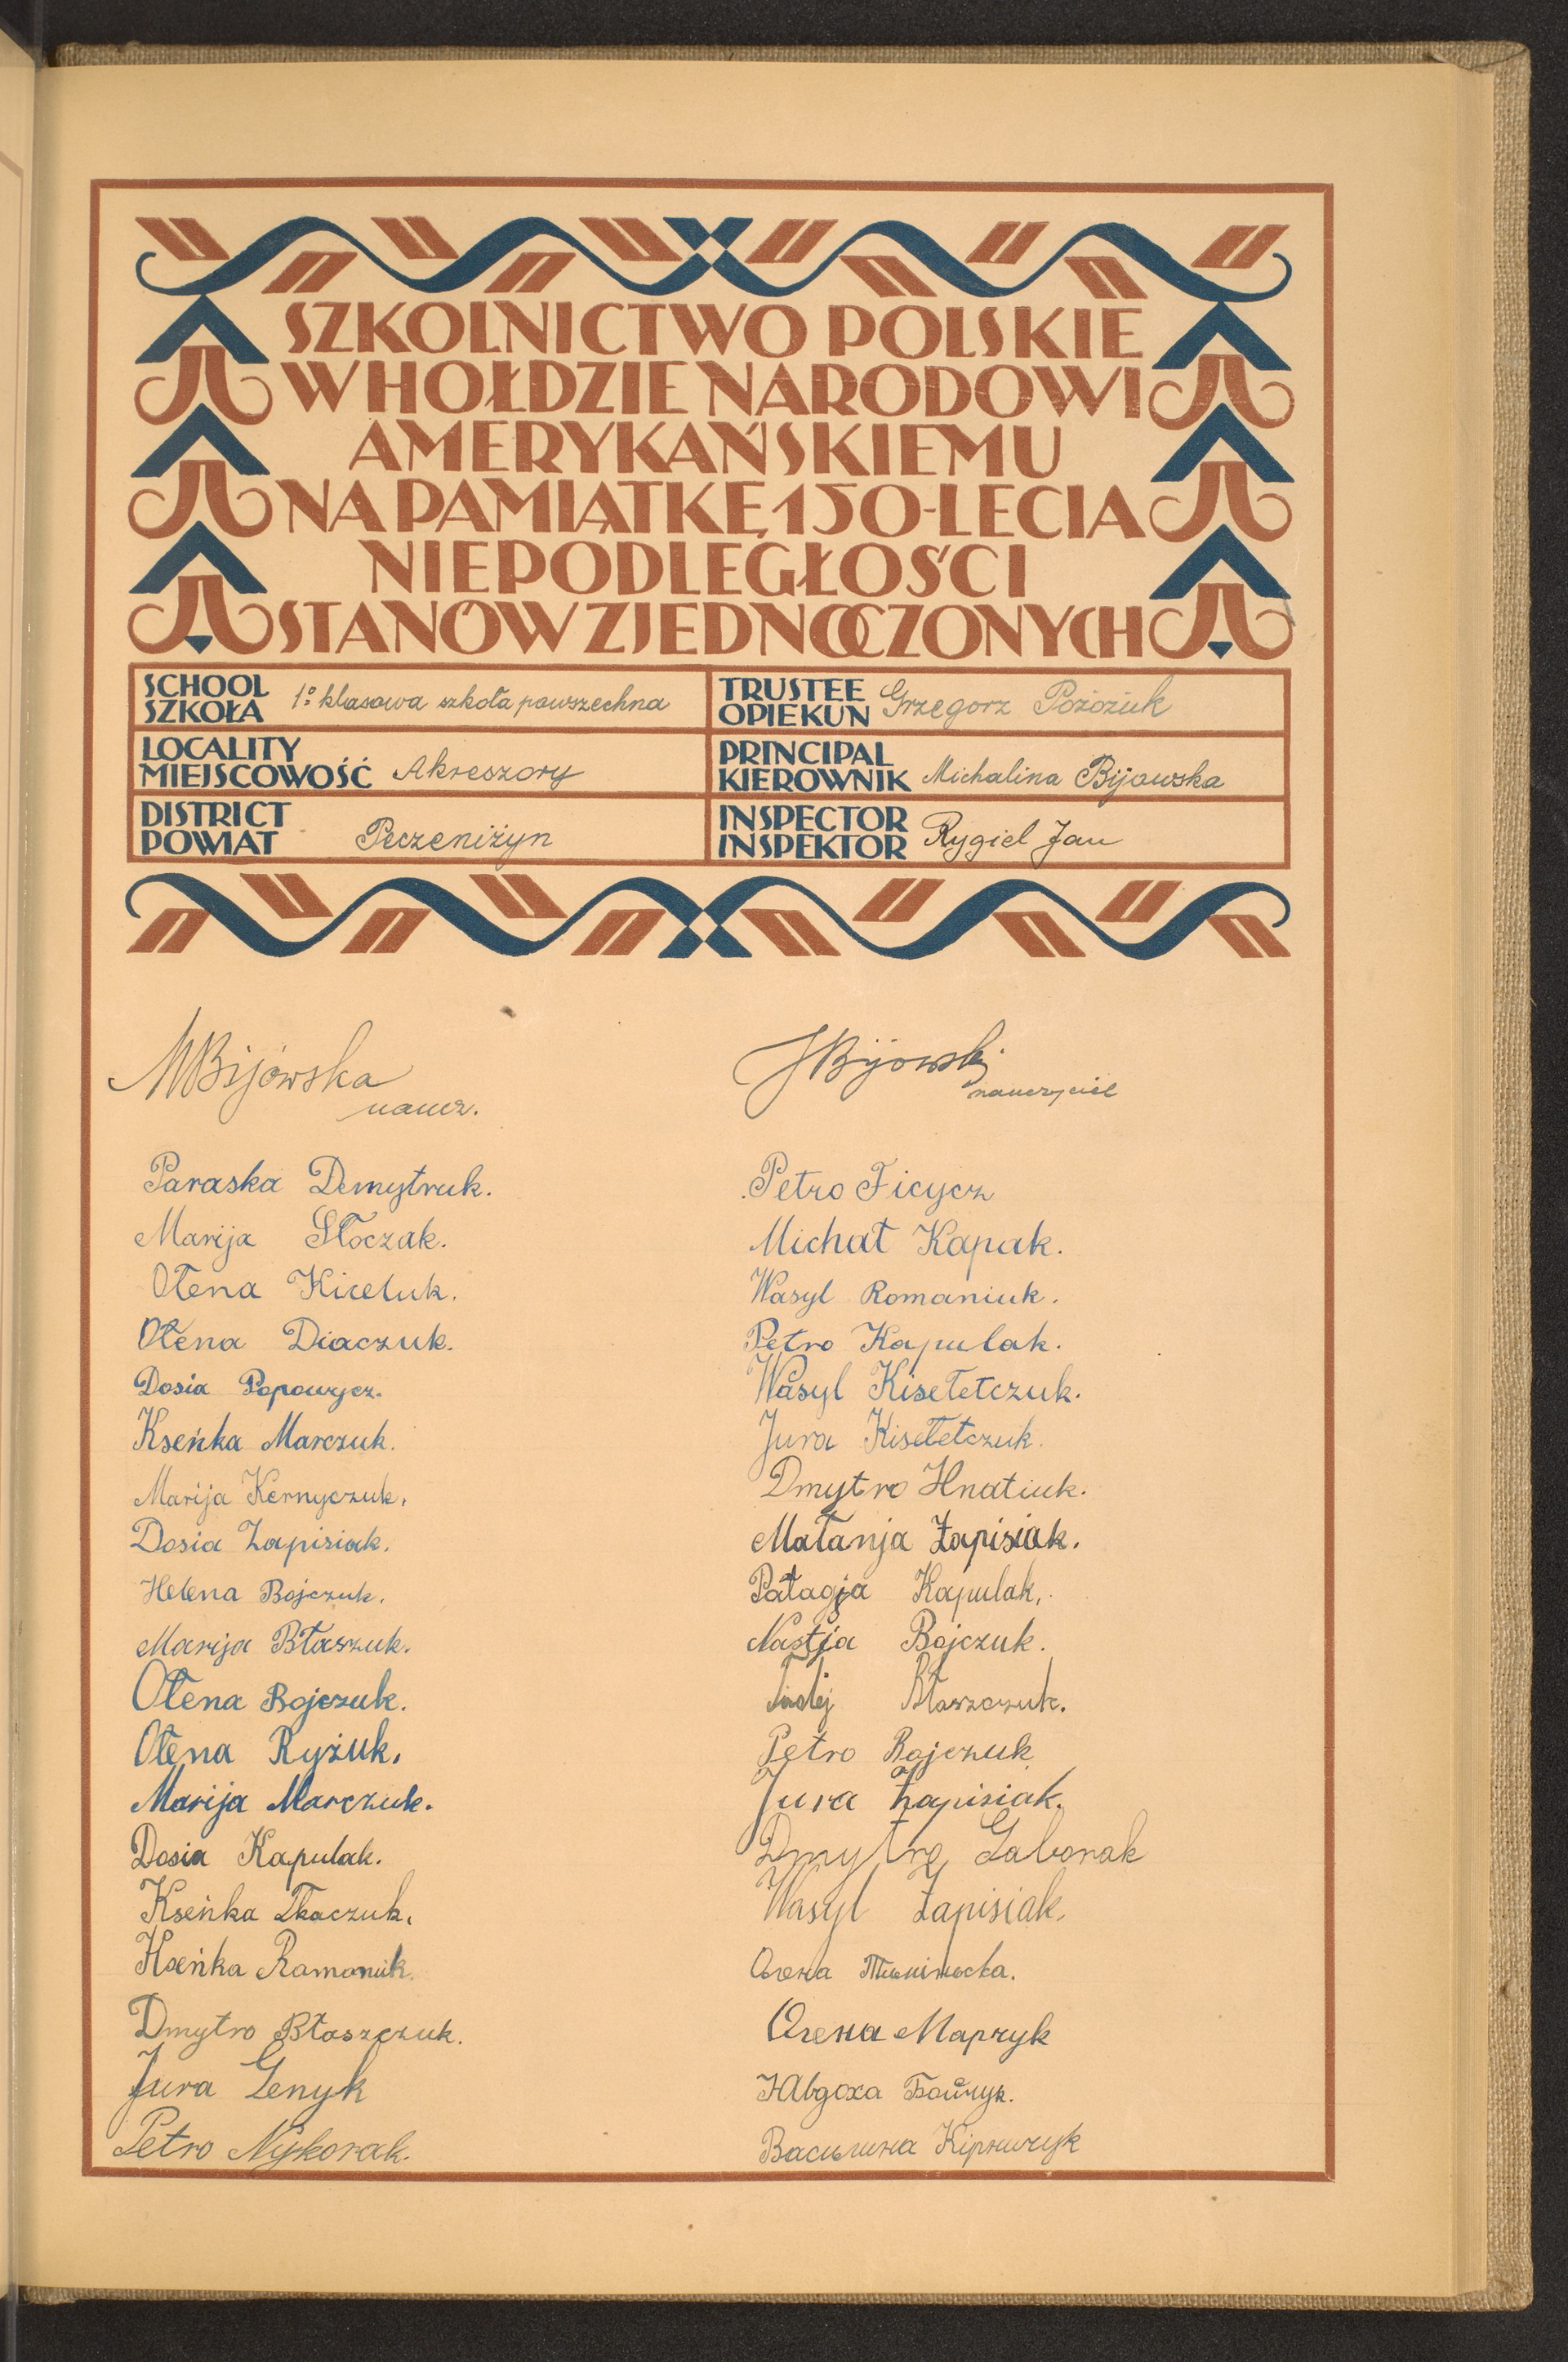 SZKOLNICTWO POLSKIE
W HOŁDZIE NARODOWI
AMERYKAŃSKIEMU
NA PAMIĄTKĘ 150-LECIA
NIEPODLEGŁOŚCI
STANÓW ZJEDNOCZONYCH
SCHOOL
SZKOŁA 1º klasowa szkoła powszechna
TRUSTEE
OPIEKUN Grzegorz Pożożuk
LOCALITY
MIEJSCOWOŚĆ Akreszory
PRINCIPAL
KIEROWNIK Michalina Bijowska
DISTRICT
POWIAT Peczeniżyn
INSPECTOR
INSPEKTOR Rygiel Jan
MBijowska
naucz.
JBijowski
nauczyciel
Paraska Demytruk.
Marija Słoczak.
Ołena Kiceluk.
Ołena Diaczuk.
Dosia Popowycz.
Kseńka Marczuk.
Marija Kernyczuk.
Dosia Zapisiak.
Helena Bojczuk.
Marija Błaszuk.
Ołena Bojczuk.
Ołena Ryżuk.
Marija Marczuk.
Dosia Kapulak.
Kseńka Tkaczuk.
Kseńka Ramaniuk.
Dmytro Błaszczuk.
Jura Genyk
Petro Nykorak.
Petro Ficycz
Michał Kapak.
Wasyl Romaniuk.
Petro Kapulak.
Wasyl Kisełetczuk.
Jura Kisełetczuk.
Dmytro Hnatiuk.
Małanja Zapisiak.
Pałagja Kapulak.
Nastja Bojczuk.
Błaszczuk.
Petro Bojczuk
Jura Zapisiak.
Dmytro Gaborak
Wasyl Zapisiak.
Олена
Олена Марчук
Явдоха Бойчук.
Василина Кірничук